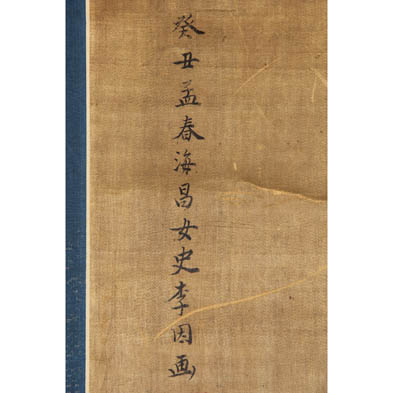 癸丑孟春海昌女史李因画